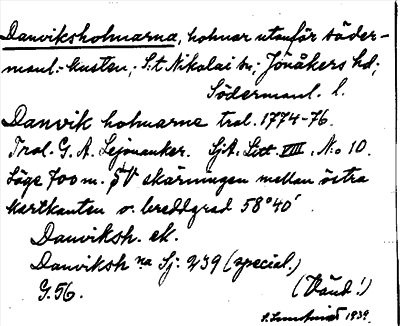 Danviksholmarna, holmar utanför Söder-
manl.-kusten, S:t Nikolai sn. Jönåkers hd;
Södermanl. l.
Danvik holmarne tral. 1774-76.
Tral. G. A. Lejonanker. SjA. Litt. VIII, No 10.
Läge 700 m. SV skärningen mellan östra
kartkanten o. breddgrad 58°40'
Danviksh. ek.
Danviksh na Sj: 239 (special.)
G. 56.
(Vänd!)
1939.